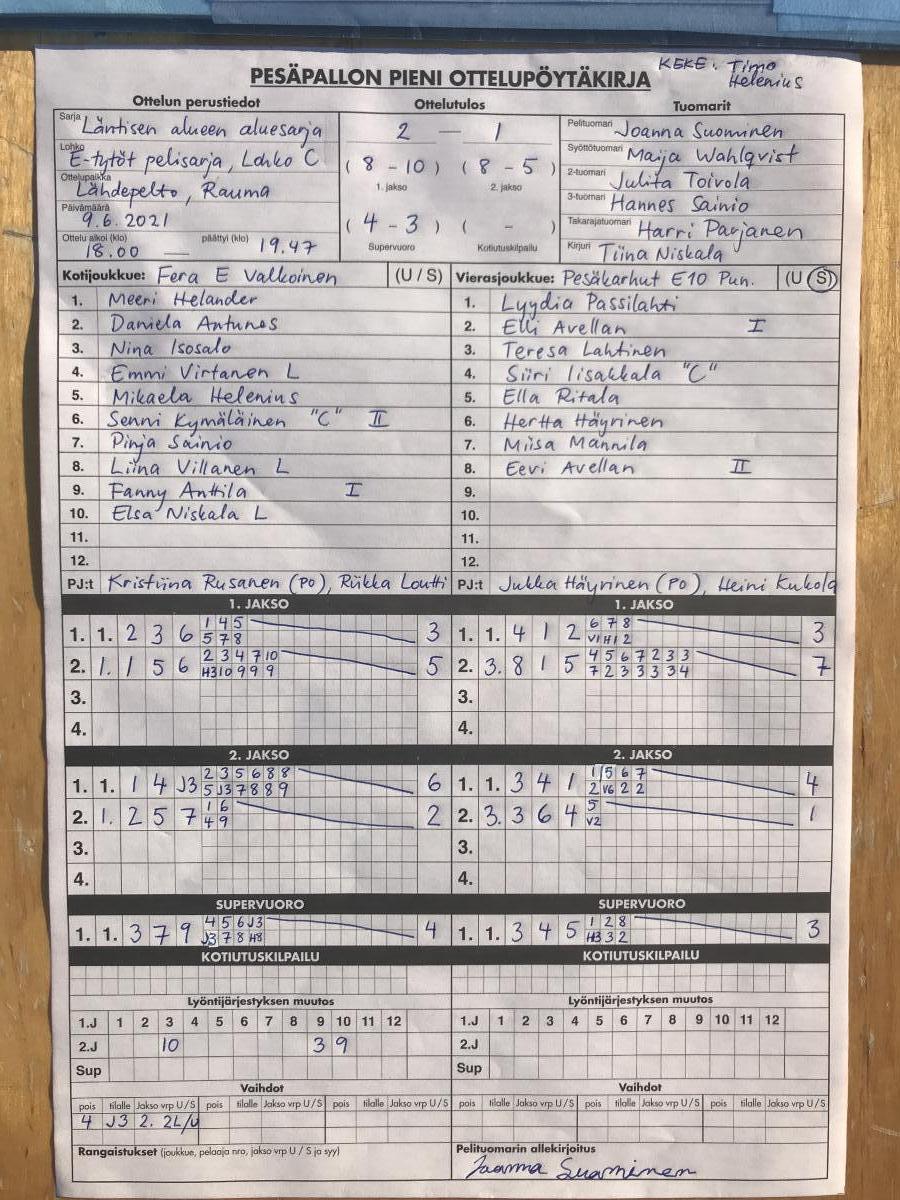 KEKE: Timo
Helenius
PESÄPALLON PIENI OTTELUPÖYTÄKIRJA
Ottelun perustiedot Ottelutulos Tuomarit
Sarja Läntisen alueen aluesarja
Lohko E-tytöt pelisarja, Lohko C
Ottelupaikka Lähdepelto, Rauma
Päivämäärä 9.6.2021
Ottelu alkoi (klo) 18.00 — päättyi (klo) 19.47
2 — 1
(8 - 10) (8 - 5)
1. jakso 2. jakso
(4 - 3) ( - )
Supervuoro Kotiutuskilpailu
Pelituomari Joanna Suominen
Syöttötuomari Maija Wahlqvist
2-tuomari Julita Toivola
3-tuomari Hannes Sainio
Takarajatuomari Harri Parjanen
Kirjuri Tiina Niskala
Kotijoukkue: Fera E Valkoinen (U / S)
1. Meeri Helander
2. Daniela Antunes
3. Nina Isosalo
4. Emmi Virtanen L
5. Mikaela Helenius
6. Senni Kymäläinen "C" II
7. Pinja Sainio
8. Liina Villanen L
9. Fanny Anttila I
10. Elsa Niskala L
11.
12.
PJ:t Kristiina Rusanen (PO), Riikka Loutti
Vierasjoukkue: Pesäkarhut E10 Pun. (U / S)
1. Lyydia Passilahti
2. Elli Avellan I
3. Teresa Lahtinen
4. Siiri Iisakkala "C"
5. Ella Ritala
6. Hertta Häyrinen
7. Miisa Mannila
8. Eevi Avellan II
9.
10.
11.
12.
PJ:t Jukka Häyrinen (PO), Heini Kukola
1. JAKSO
1. 1. 2 3 6 1 4 5 3
5 7 8
2. 1. 1 5 6 2 3 4 7 10 5
H3 10 9 9 9
3.
4.
1. JAKSO
1. 1. 4 1 2 6 7 8 3
V1 H1 2
2. 3. 8 1 5 4 5 6 7 2 3 3 7
7 2 3 3 3 3 4
3.
4.
2. JAKSO
1. 1. 1 4 J3 2 3 5 6 8 8 6
5 J3 7 8 8 9
2. 1. 2 5 7 1 6 2
4 9
3.
4.
2. JAKSO
1. 1. 3 4 1 1 5 6 7 4
2 V6 2 2
2. 3. 3 6 4 5 1
V2
3.
4.
SUPERVUORO
1. 1. 3 7 9 4 5 6 J3 4
J3 7 8 H8
SUPERVUORO
1. 1. 3 4 5 1 2 8 3
H3 3 2
KOTIUTUSKILPAILU
KOTIUTUSKILPAILU
Lyöntijärjestyksen muutos
1.J 1 2 3 4 5 6 7 8 9 10 11 12
2.J 10 3 9
Sup
Lyöntijärjestyksen muutos
1.J 1 2 3 4 5 6 7 8 9 10 11 12
2.J
Sup
Vaihdot
pois tilalle Jakso vrp U / S pois tilalle Jakso vrp U / S pois tilalle Jakso vrp U / S
4 J3 2. 2L/U
Vaihdot
pois tilalle Jakso vrp U / S pois tilalle Jakso vrp U / S pois tilalle Jakso vrp U / S
Rangaistukset (joukkue, pelaaja nro, jakso vrp U / S ja syy)
Pelituomarin allekirjoitus
Joanna Suominen